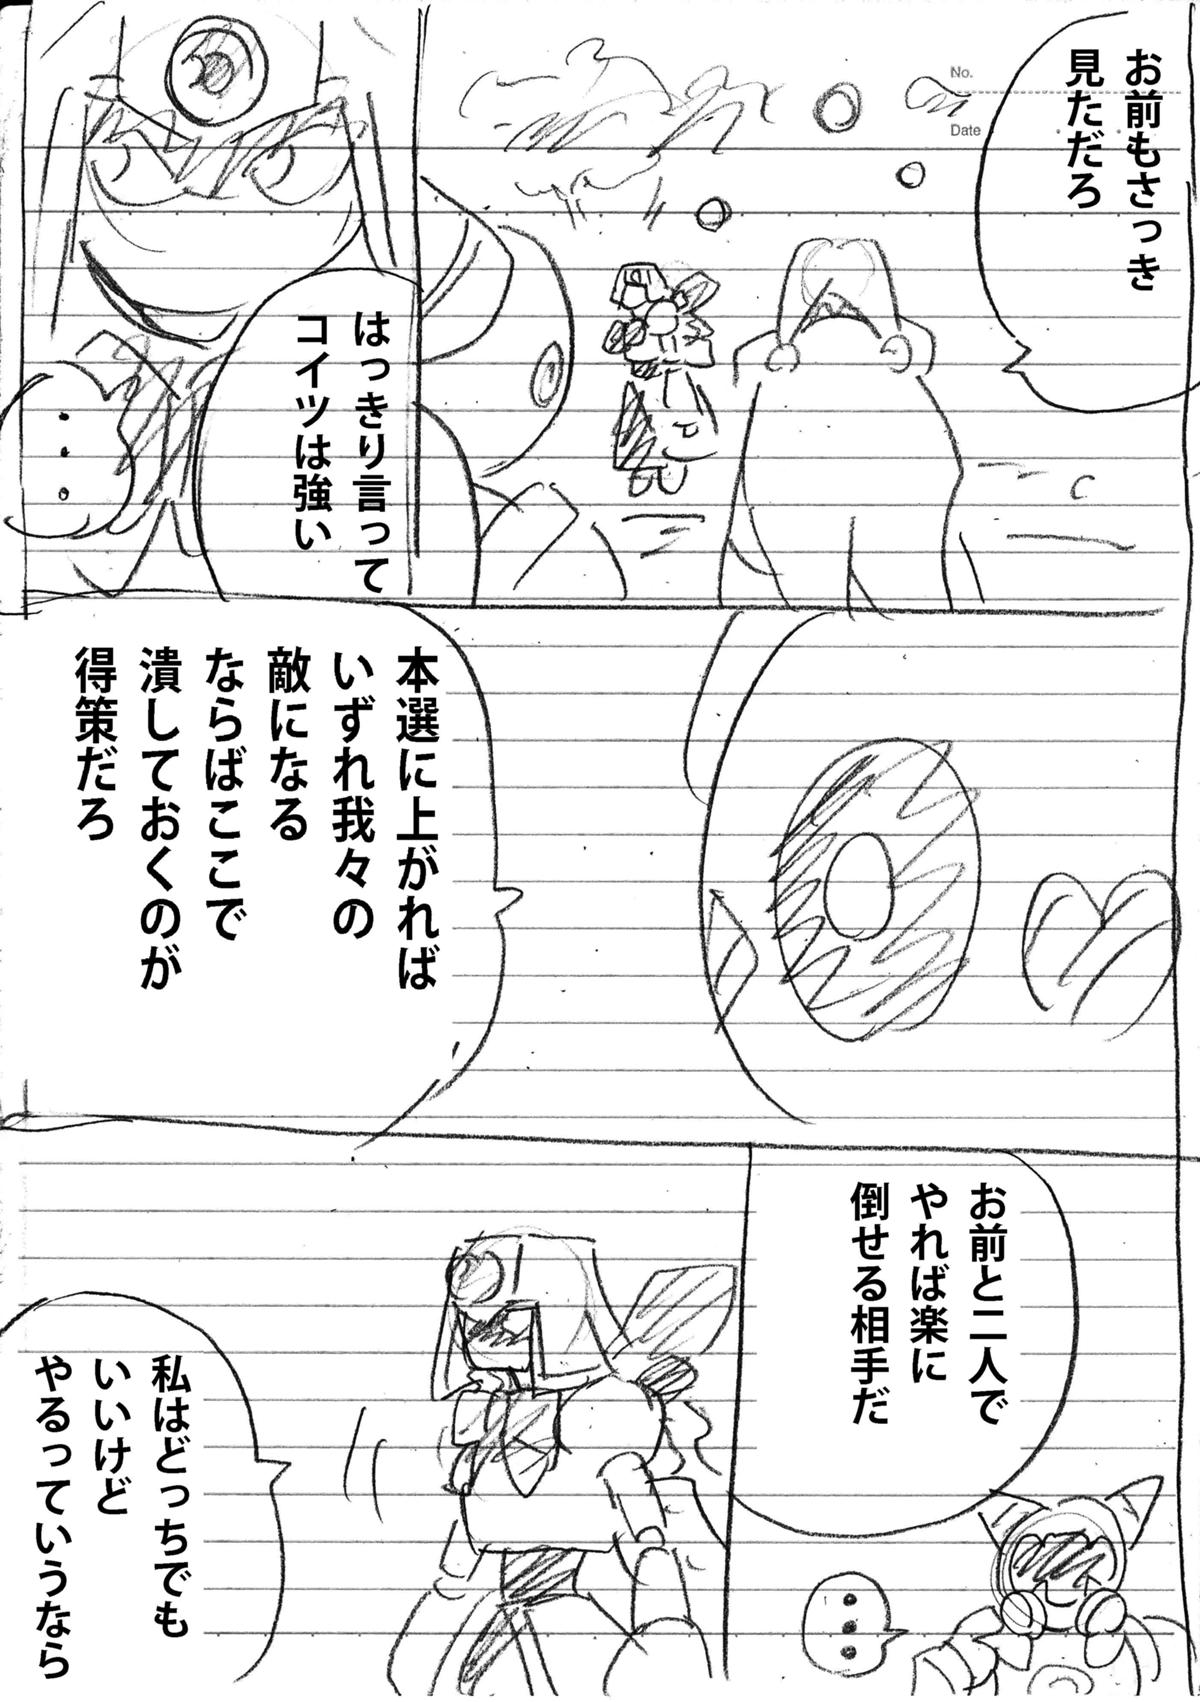 No.
Date
お前もさっき
見ただろ
はっきり言って
コイツは強い
…
本選に上がれば
いずれ我々の
敵になる
ならばここで
潰しておくのが
得策だろ
お前と二人で
やれば楽に
倒せる相手だ
…
私はどっちでも
いいけど
やるっていうなら